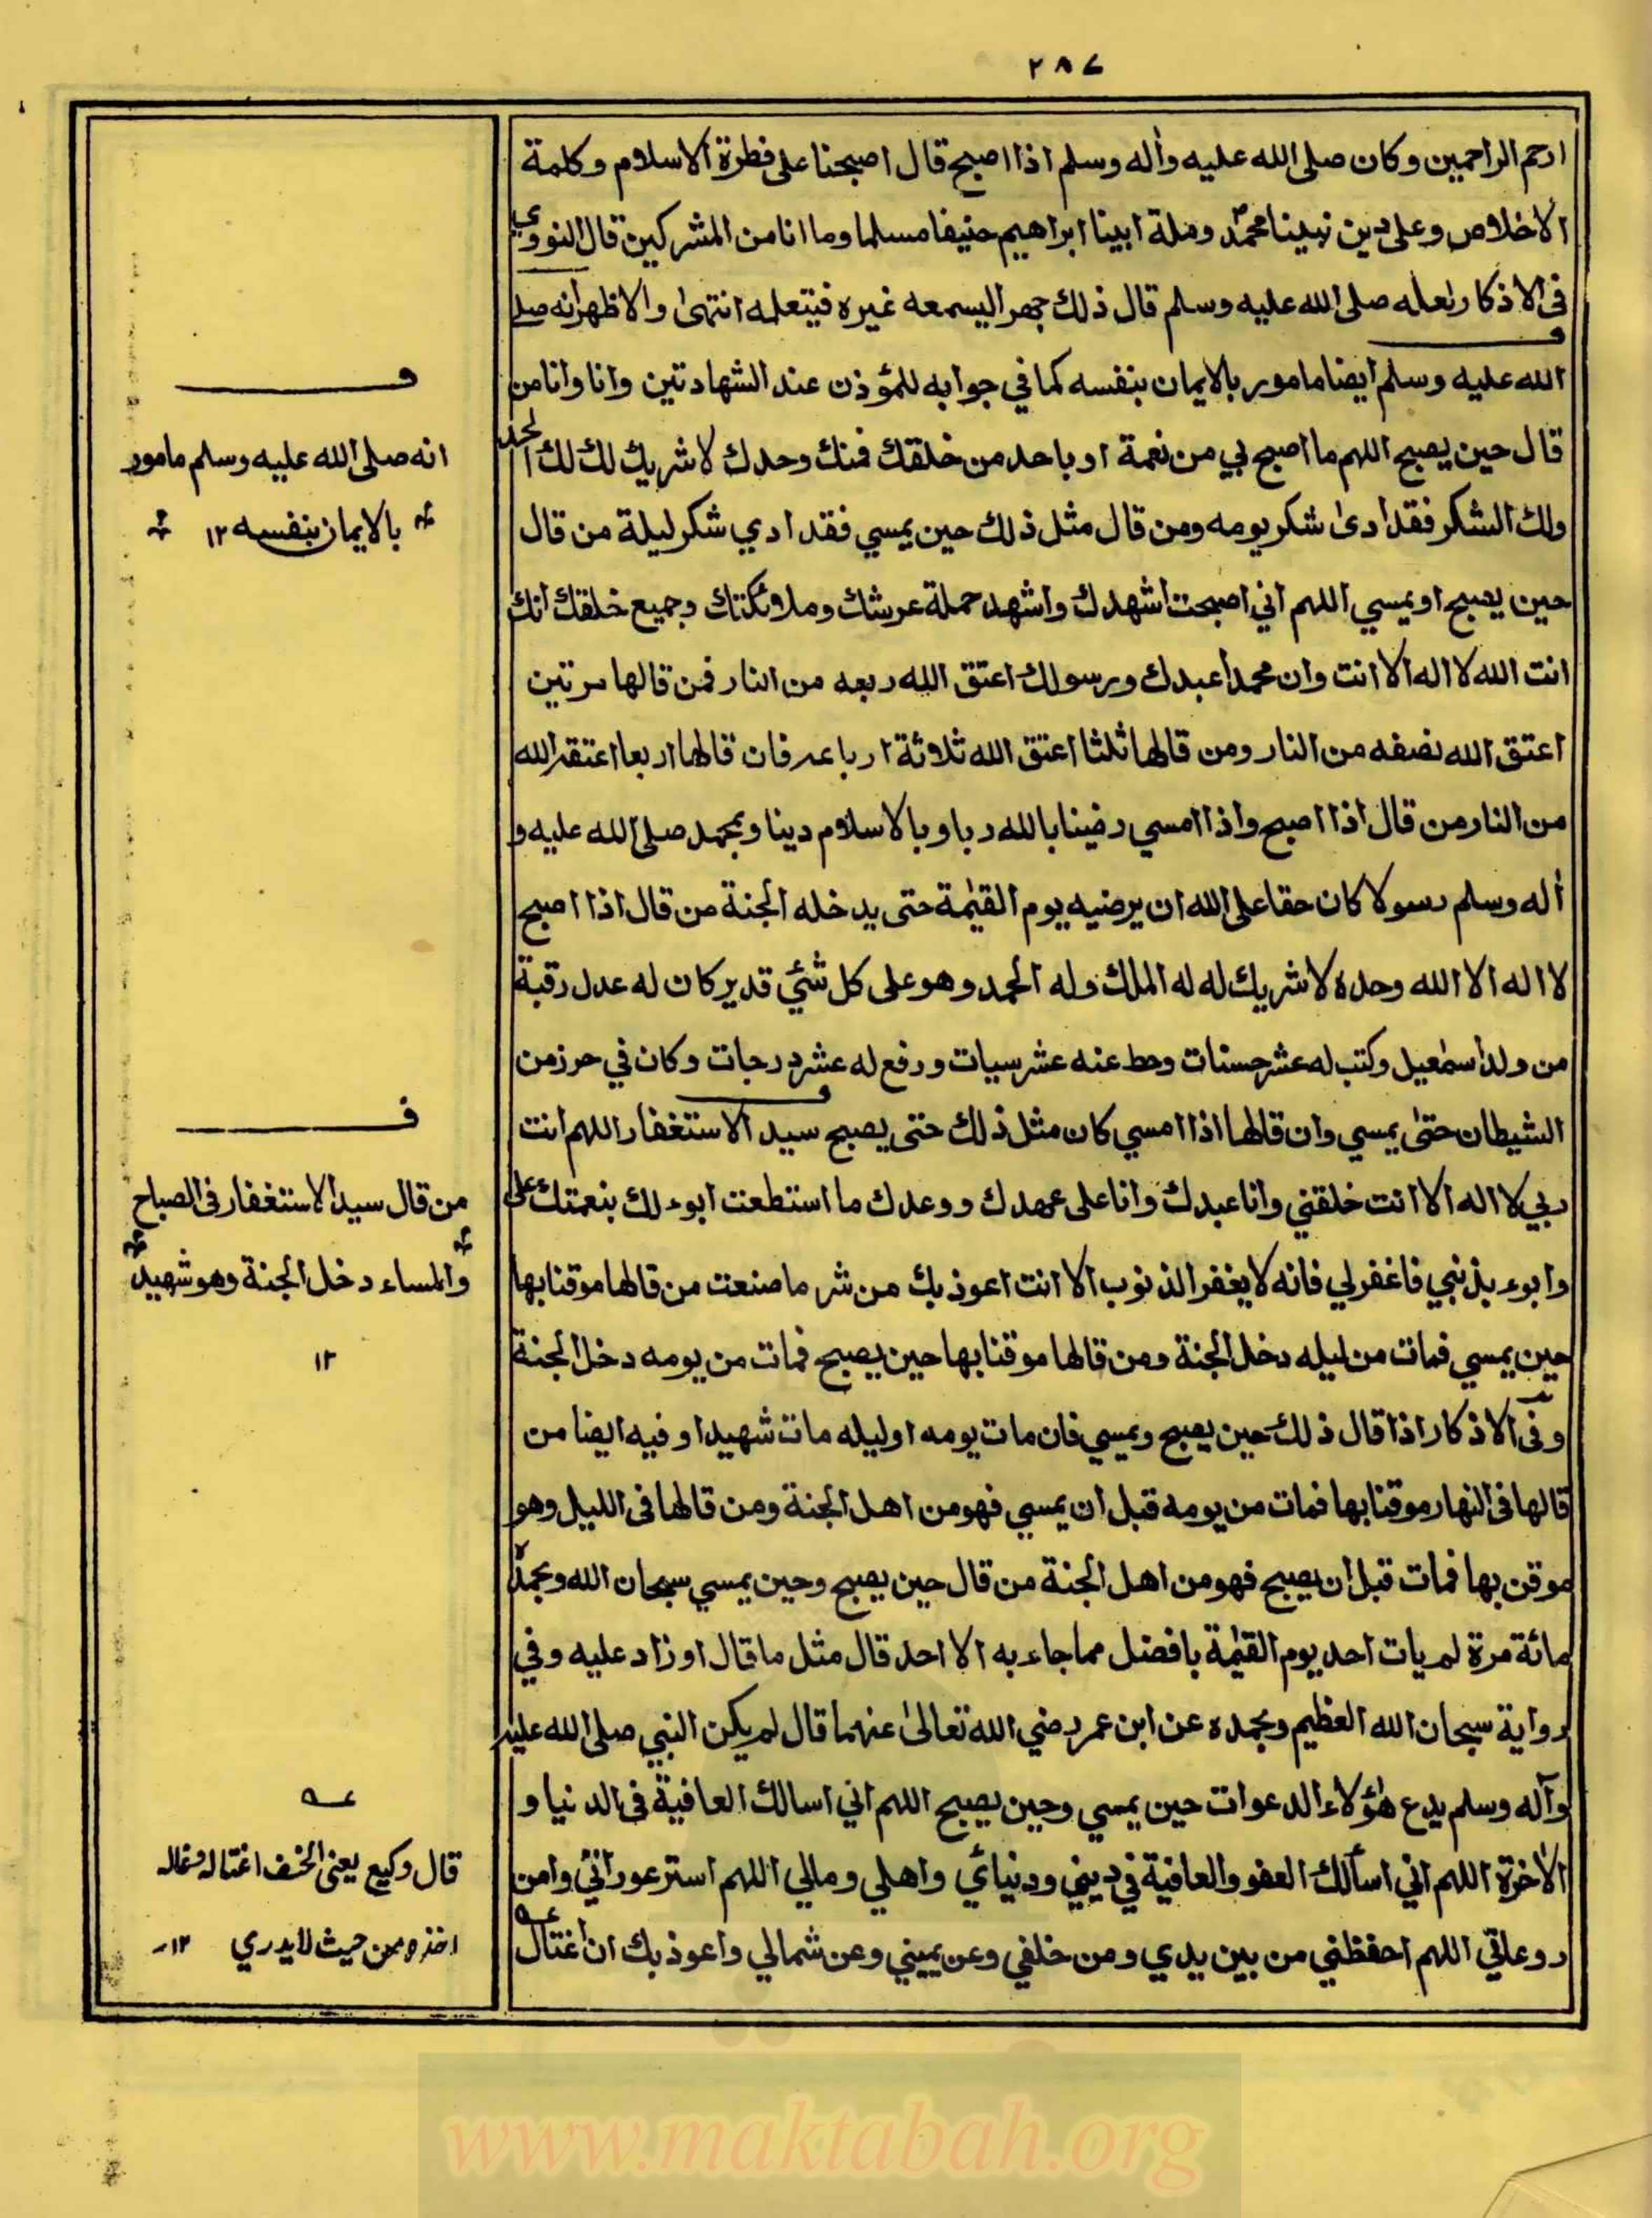 ٢٨٧
ارحم الراحمين وكان صلى الله عليه واٰله وسلم اذا اصبح قال اصبحنا على فطرة الاسلام وكلمة
الاخلاص وعلى دين نبينا محمد وملة ابينا ابراهيم حنيفا مسلما وما انا من المشركين قال النووي
فى الاذكار لعله صلى الله عليه وسلم قال ذلك جهرا ليسمعه غيره فيتعلمه انتهى والاظهر انه صلى
الله عليه وسلم ايضا مامور بالايمان بنفسه كما في جوابه للمؤذن عند الشهادتين وانا وانا من
قال حين يصبح اللهم ما اصبح بي من نعمة او باحد من خلقك فمنك وحدك لا شريك لك لك الحمد
ولك الشكر فقد ادى شكر يومه ومن قال مثل ذلك حين يمسي فقد ادي شكر ليلة من قال
حين يصبح او يمسي اللهم اني اصبحت اشهدك واشهد حملة عرشك وملائكتك وجميع خلقك انك
انت الله لا اله الا انت وان محمدا عبدك ورسولك اعتق الله ربعه من النار فمن قالها مرتين
اعتق الله نصفه من النار ومن قالها ثلثا اعتق الله ثلاثة ارباعه فان قالها اربعا اعتقه الله
من النار من قال اذا اصبح واذا امسي رضينا بالله ربا وبالاسلام دينا وبمحمد صلى الله عليه و
اٰله وسلم رسولا كان حقا على الله ان يرضيه يوم القيٰمة حتى يدخله الجنة من قال اذا اصبح
لا اله الا الله وحده لا شريك له له الملك وله الحمد وهو على كل شئي قدير كان له عدل رقبة
من ولد اسمٰعيل وكتب له عشر حسنات وحط عنه عشر سيات ورفع له عشر درجات وكان في حرز من
الشيطان حتى يمسي وان قالها اذا امسي كان مثل ذلك حتى يصبح سيد الاستغفار اللهم انت
ربي لا اله الا انت خلقتني وانا عبدك وانا على عهدك ووعدك ما استطعت ابوء لك بنعمتك على
وابوء بذنبي فاغفر لي فانه لا يغفر الذنوب الا انت اعوذ بك من شر ما صنعت من قالها موقنا بها
حين يمسي فمات من ليله دخل الجنة ومن قالها موقنا بها حين يصبح فمات من يومه دخل الجنة
وفى الاذكار اذا قال ذلك حين يصبح ويمسي فان مات يومه او ليله مات شهيدا وفيه ايضا من
قالها فى النهار موقنا بها فمات من يومه قبل ان يمسي فهو من اهل الجنة ومن قالها فى الليل وهو
موقن بها فمات قبل ان يصبح فهو من اهل الجنة من قال حين يصبح وحين يمسي سبحان الله وبحمده
مائة مرة لم يات احد يوم القيٰمة بافضل مما جاء به الا احد قال مثل ما قال او زاد عليه وفي
رواية سبحان الله العظيم وبحمده عن ابن عمر رضي الله تعالىٰ عنهما قال لم يكن النبي صلى الله عليه
وآله وسلم يدع هٰؤلاء الدعوات حين يمسي وحين يصبح اللهم اني اسالك العافية فى الدنيا و
الاٰخرة اللهم اني اسألك العفو والعافية في ديني ودنيائي واهلي ومالي اللهم استر عوراتي وامن
روعاتي اللهم احفظني من بين يدي ومن خلفي وعن يميني وعن شمالي واعوذ بك ان اغتال
ف
انه صلى الله عليه وسلم مامور
بالايمان بنفسه ١٢
ف
من قال سيد الاستغفار فى الصباح
والمساء دخل الجنة وهو شهيد
١٢
عـه
قال وكيع يعنى الخسف اغتاله وغاله
اخذه من حيث لا يدري ١٢
www.maktabah.org